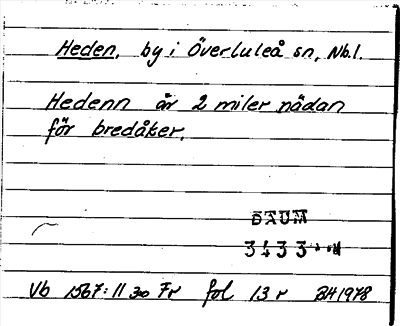 Heden, by i Överluleå sn, Nb.l.
Hedenn är 2 miler nädan
för bredåker.
DAUM
3433
Vb 1567:11 30 Fr fol 13 r BH 1978